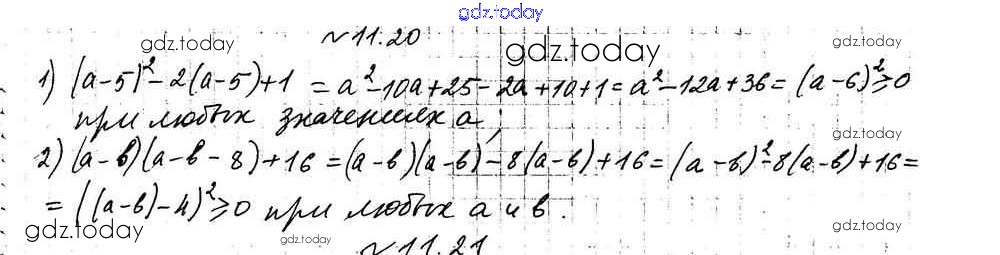 gdz.today
№11.20
gdz.today gdz.today
1) (a-5)²-2(a-5)+1 = a²-10a+25-2a+10+1 = a²-12a+36 = (a-6)²≥0
при любых значениях a;
gdz.today
2) (a-b)(a-b-8)+16 = (a-b)(a-b)-8(a-b)+16 = (a-b)²-8(a-b)+16 =
= ((a-b)-4)²≥0 при любых a и b.
gdz.today gdz.today gdz.today
№11.21